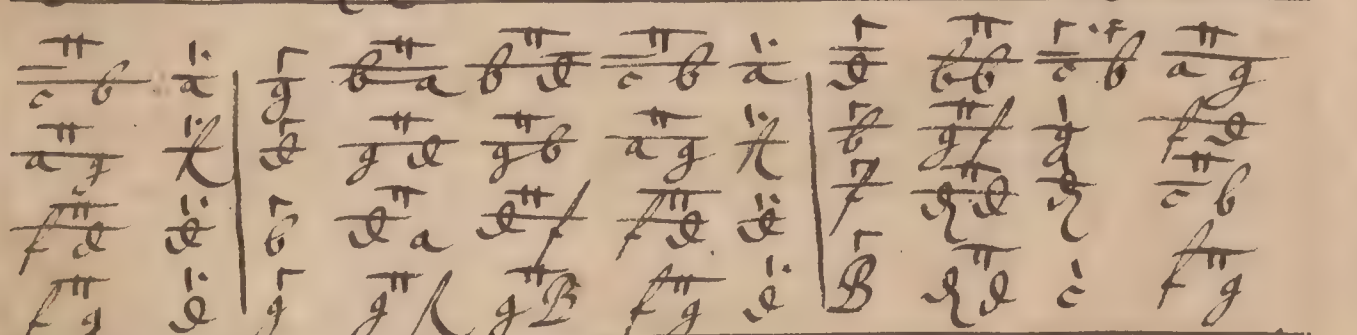 c b a | g b a b d c b a | d b b c b a g
a g A | d g d g b a g A | b g f g f d
f d d | b d a d f f d d | f d c b
f g d | g g A g B f g d | B d c f g